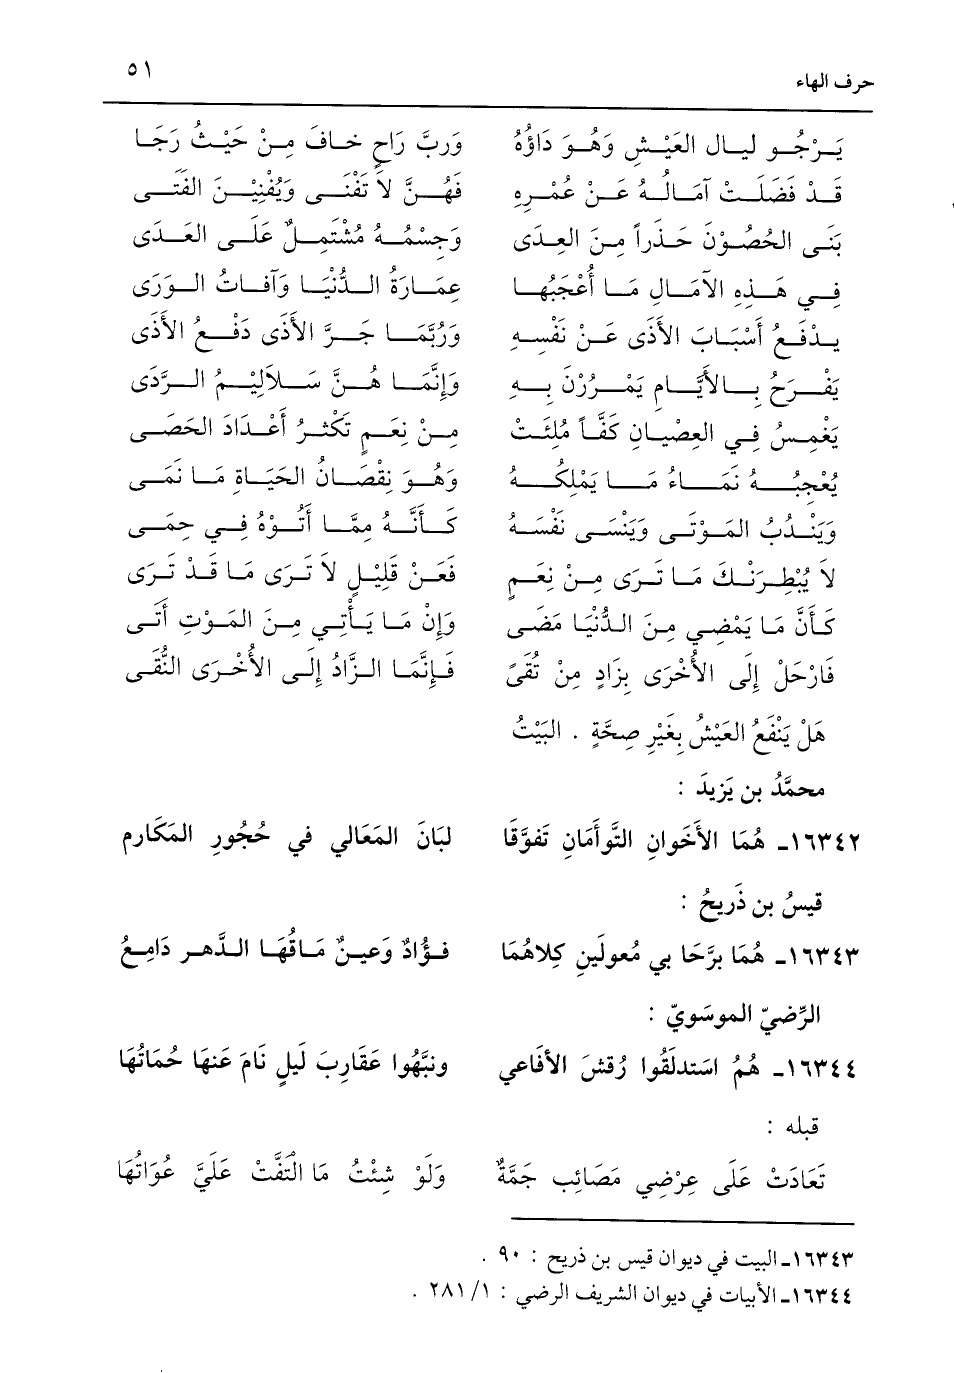 حرف الهاء ٥١
يَرْجُو لِيالَ العَيْشِ وَهُوَ دَاؤُهُ وَرُبَّ رَاجٍ خَافَ مِنْ حَيْثُ رَجَا
قَدْ فَضَلَتْ آمَالُهُ عَنْ عُمْرِهِ فَهُنَّ لاَ تَفْنَى وَيُفْنِيْنَ الفَتَى
بَنَى الحُصُوْنَ حَذَراً مِنَ العِدَى وَجِسْمُهُ مُشْتَمِلٌ عَلَى العَدَى
فِي هَذِهِ الآمَالِ مَا أَعْجَبُهَا عِمَارَةُ الدُّنْيَا وَآفَاتُ الوَرَى
يَدْفَعُ أَسْبَابَ الأَذَى عَنْ نَفْسِهِ وَرُبَّمَا جَرَّ الأَذَى دَفْعُ الأَذَى
يَفْرَحُ بِالأَيَّامِ يَمْرُرْنَ بِهِ وَإِنَّمَا هُنَّ سَلاَلِيْمُ الرَّدَى
يَغْمِسُ فِي العِصْيَانِ كَفّاً مُلِئَتْ مِنْ نِعَمٍ تَكْثُرُ أَعْدَادَ الحَصَى
يُعْجِبُهُ نَمَاءُ مَا يَمْلِكُهُ وَهُوَ نِقْصَانُ الحَيَاةِ مَا نَمَى
وَيَنْدُبُ المَوْتَى وَيَنْسَى نَفْسَهُ كَأَنَّهُ مِمَّا أَتَوْهُ فِي حِمَى
لاَ يُبْطِرَنْكَ مَا تَرَى مِنْ نِعَمٍ فَعَنْ قَلِيْلٍ لاَ تَرَى مَا قَدْ تَرَى
كَأَنَّ مَا يَمْضِي مِنَ الدُّنْيَا مَضَى وَإِنْ مَا يَأْتِي مِنَ المَوْتِ أَتَى
فَارْحَلْ إِلَى الأُخْرَى بِزَادٍ مِنْ تُقَىً فَإِنَّمَا الزَّادُ إِلَى الأُخْرَى التُّقَى
هَلْ يَنْفَعُ العَيْشُ بِغَيْرِ صِحَّةٍ . البَيْتُ
محمَّدُ بن يَزيدَ :
١٦٣٤٢ـ هُمَا الأَخَوانِ التَّوأَمَانِ تَفوَّقَا لبَانَ المَعَالي في حُجُورِ المَكَارم
قيسُ بن ذَريحُ :
١٦٣٤٣ـ هُمَا برَّحَا بي مُعولَينِ كِلاهُمَا فؤَادٌ وَعينٌ مَاقُهَا الدَّهر دَامِعُ
الرِّضيّ الموسَويّ :
١٦٣٤٤ـ هُمُ استدلَقُوا رُقشَ الأفَاعي ونبَّهُوا عَقَاربَ لَيلٍ نَامَ عَنهَا حُمَاتُهَا
قبله :
تَعَادَتْ عَلَى عِرْضِي مَصَائِب جَمَّةٌ وَلَوْ شِئْتُ مَا الْتَفَّتْ عَلَيَّ غُوَاتُهَا
١٦٣٤٣ـ البيت في ديوان قيس بن ذريح : ٩٠ .
١٦٣٤٤ـ الأبيات في ديوان الشريف الرضي : ١/ ٢٨١ .